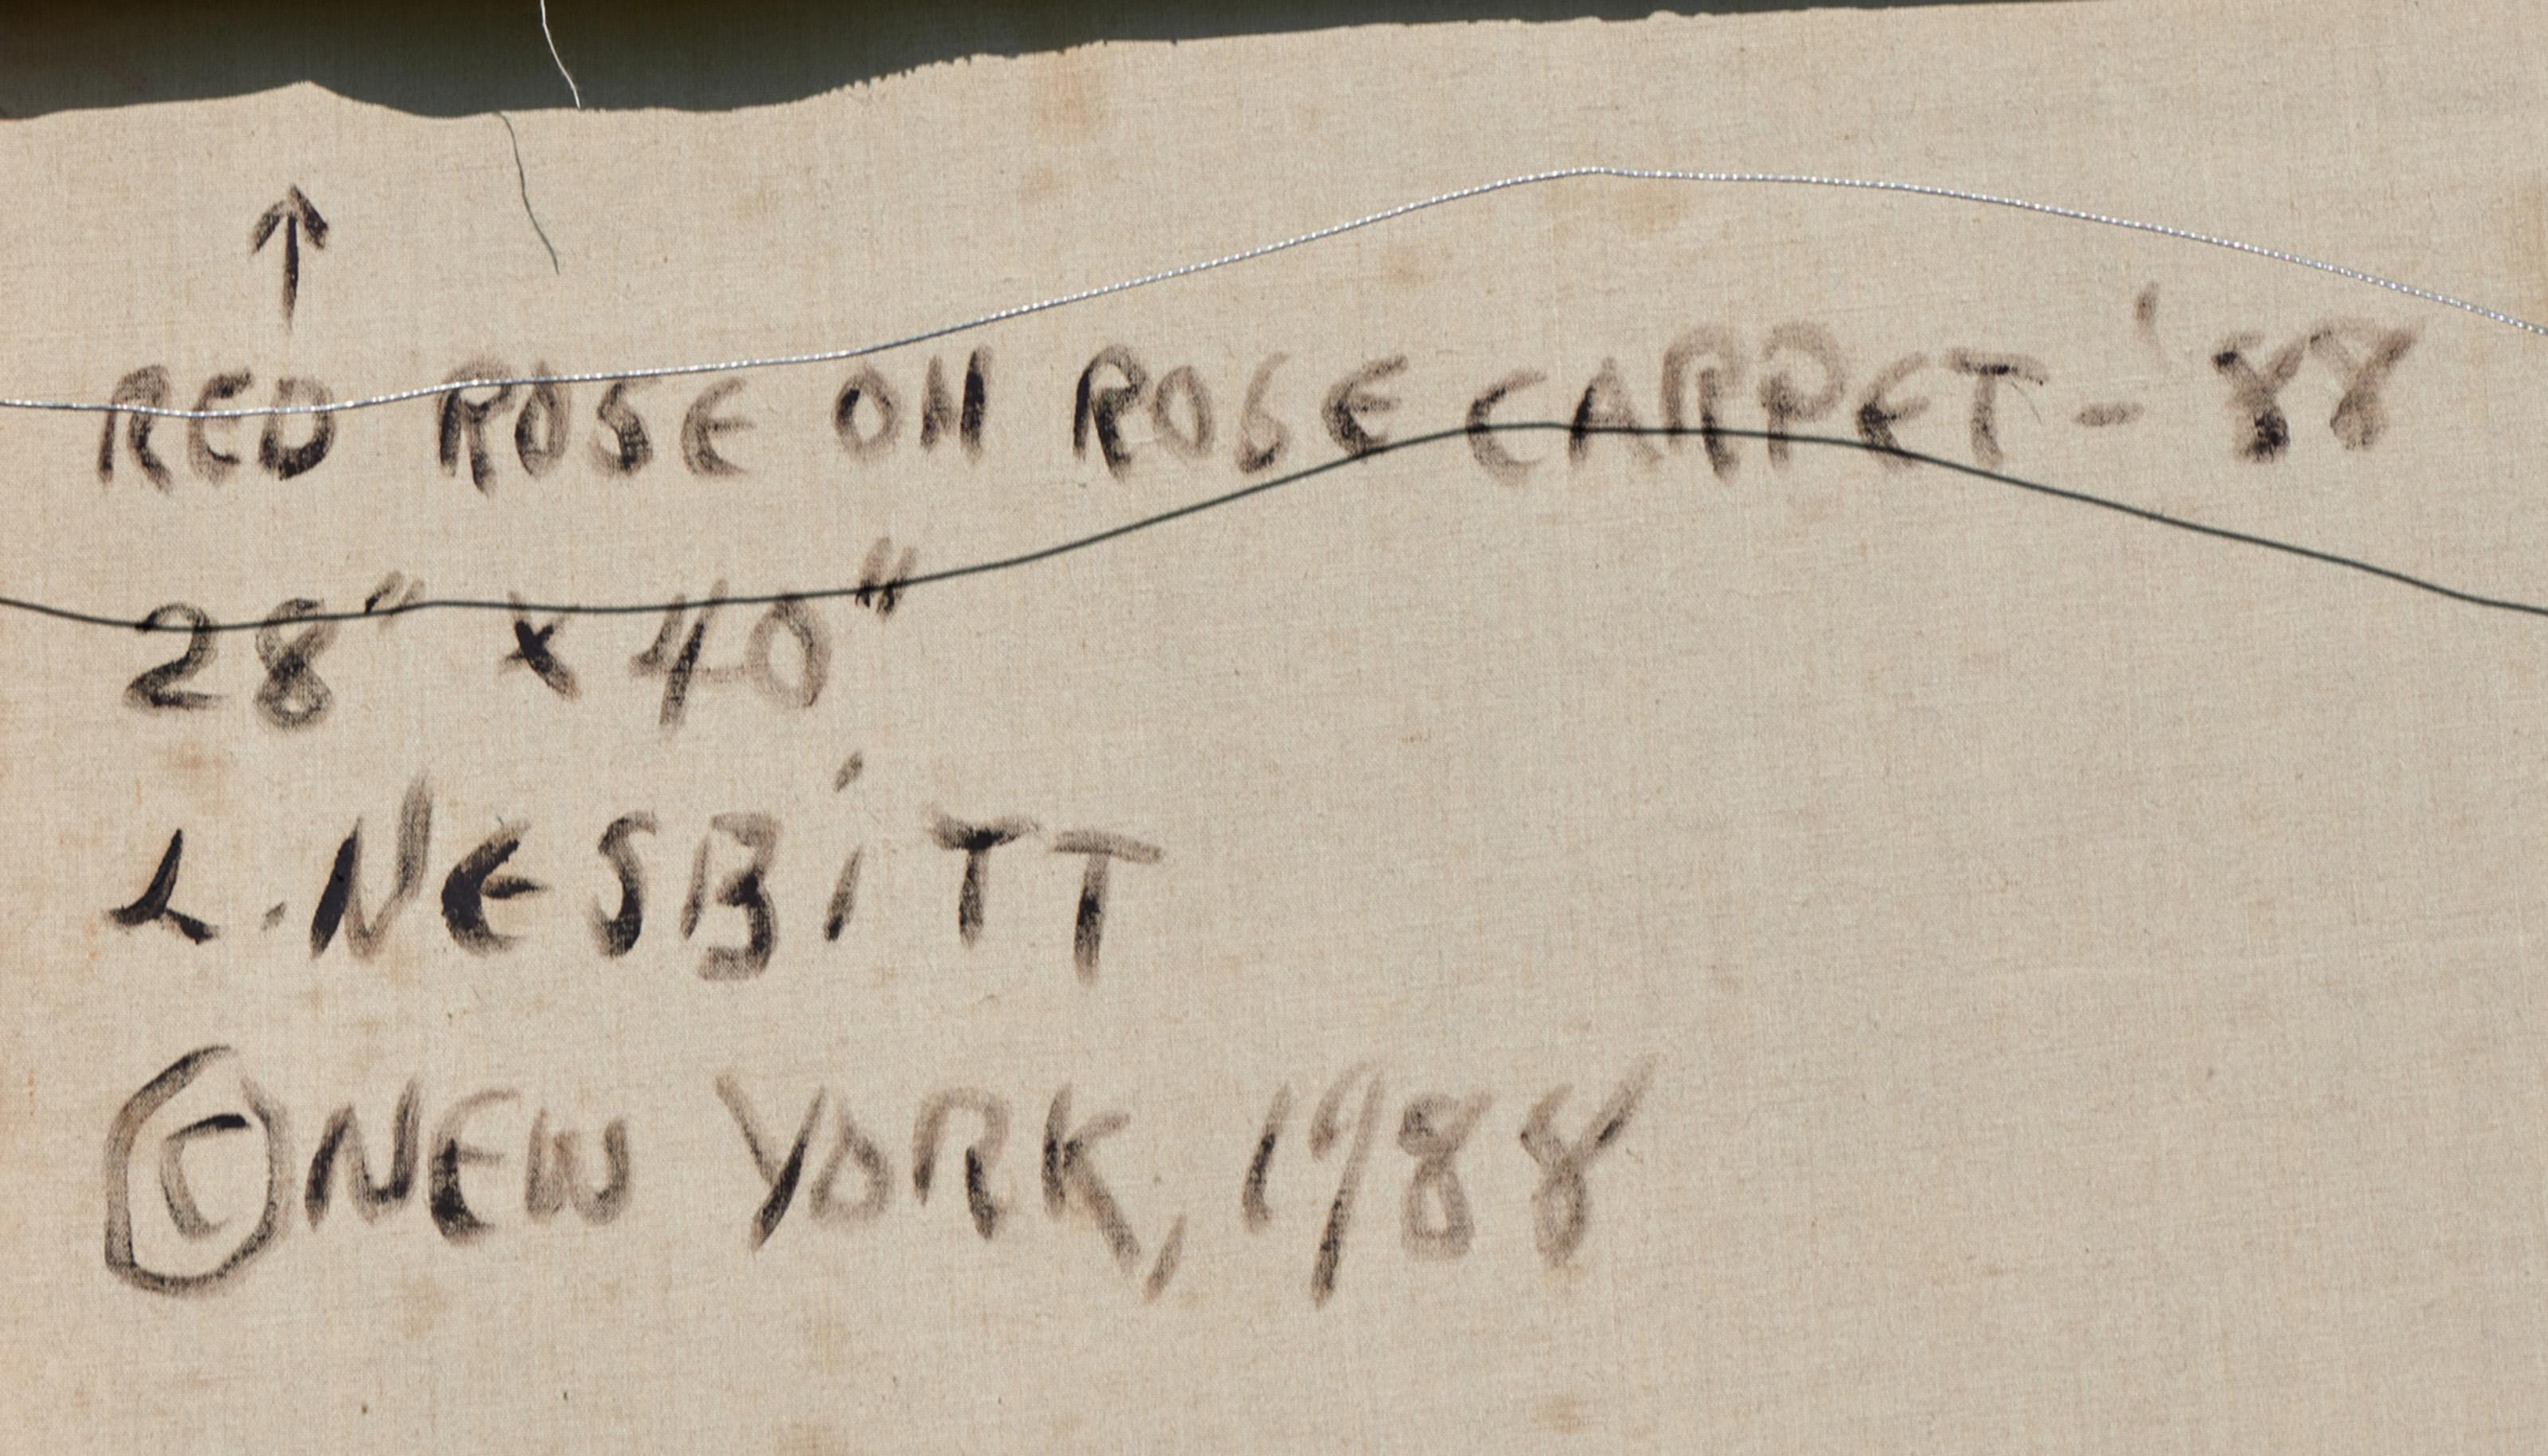 ↑
RED ROSE ON ROSE CARPET - '88
28" x 40"
L. NESBiTT
© NEW YORK, 1988